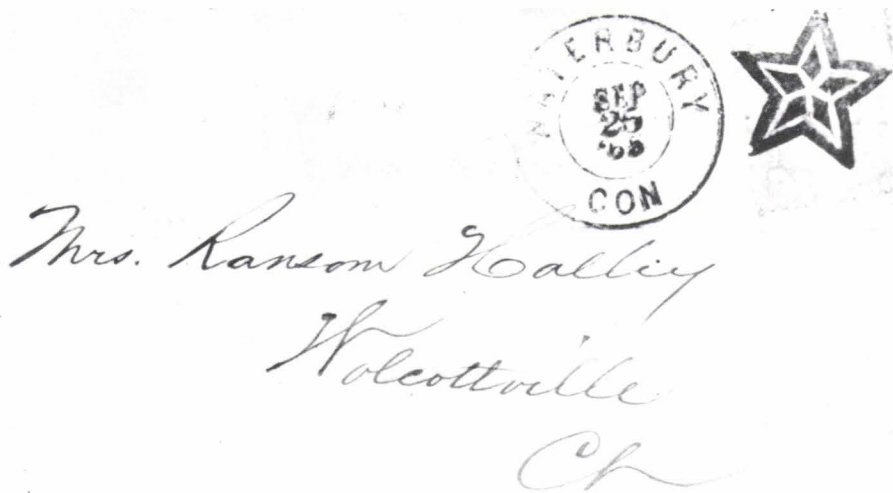 WATERBURY
SEP
25
CON
Mrs. Ransom
Wolcottville
Ct